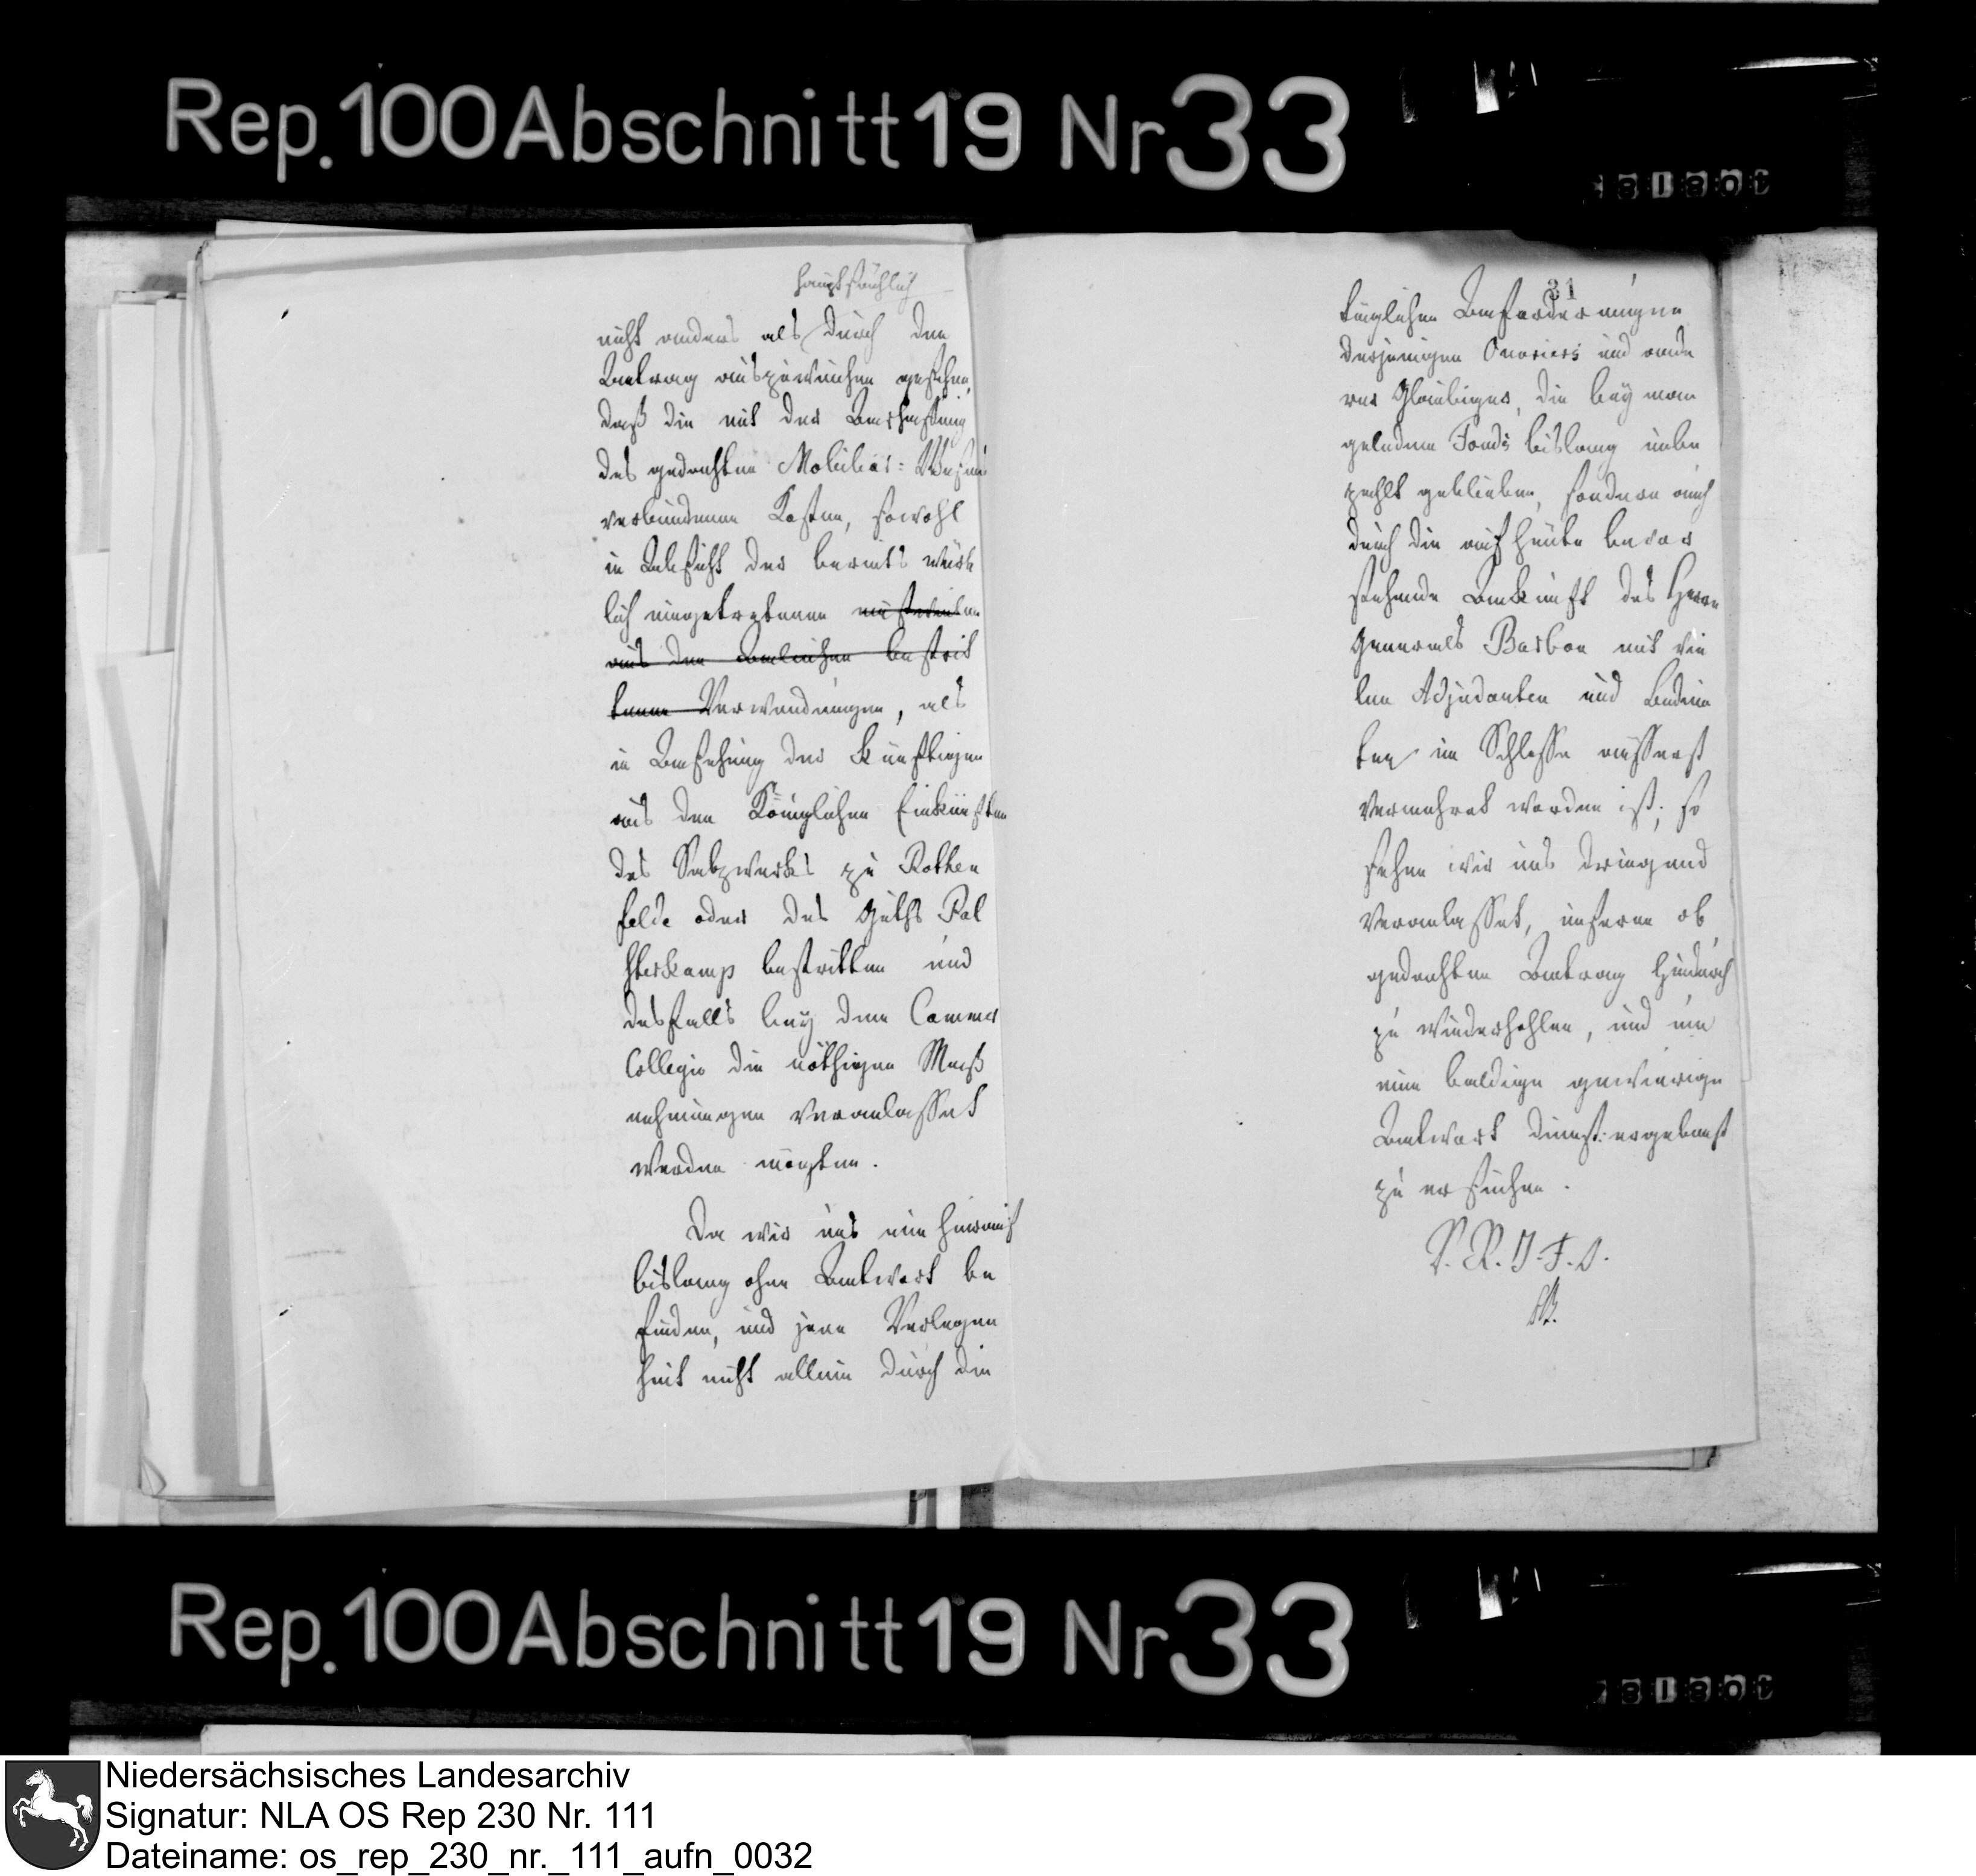 Rep. 100 Abschnitt 19 Nr 33
hauptsächlich
nicht anders als durch den
Antrag auszuweichen gesehen,
daß die mit der Anschaffung
des gedachten Mobiliar-Wesens
verbundenen Kosten, sowohl
in Absicht der bereits würk
lich eingetretenen einstweilen
aus den Anleihen bestrit
tenen Verwendungen, als
in Ansehung der künftigen
aus den Königlichen Einkünften
des Salzwerkes zu Rothen
felde oder des Guths Pal
sterkamp bestritten und
desfalls bey dem Cammer
Collegio die nöthigen Maaß
nehmungen veranlasset
werden mögten.
Da wir uns nun hierauf
bislang ohne Antwort be
finden, und jene Verlegen
heit nicht allein durch die
31
täglichen Anforderungen
derjenigen Ouvriers und ande
rer Gläubiger, die bey man
gelndem Fonds bislang unbe
zahlt geblieben, sondern auch
durch die auf heute bevor
stehende Ankunft des Herrn
Generals Barbou mit vie
len Adjudanten und Bedien
ten im Schlosse äusserst
vermehret worden ist; so
sehen wir uns dringend
veranlasset, unseren ob
gedachten Antrag hiedurch
zu wiederhohlen, und um
eine baldige gewierige
Antwort dienst-ergebenst
zu ersuchen.
Rep. 100 Abschnitt 19 Nr 33
Niedersächsisches Landesarchiv
Signatur: NLA OS Rep 230 Nr. 111
Dateiname: os_rep_230_nr._111_aufn_0032